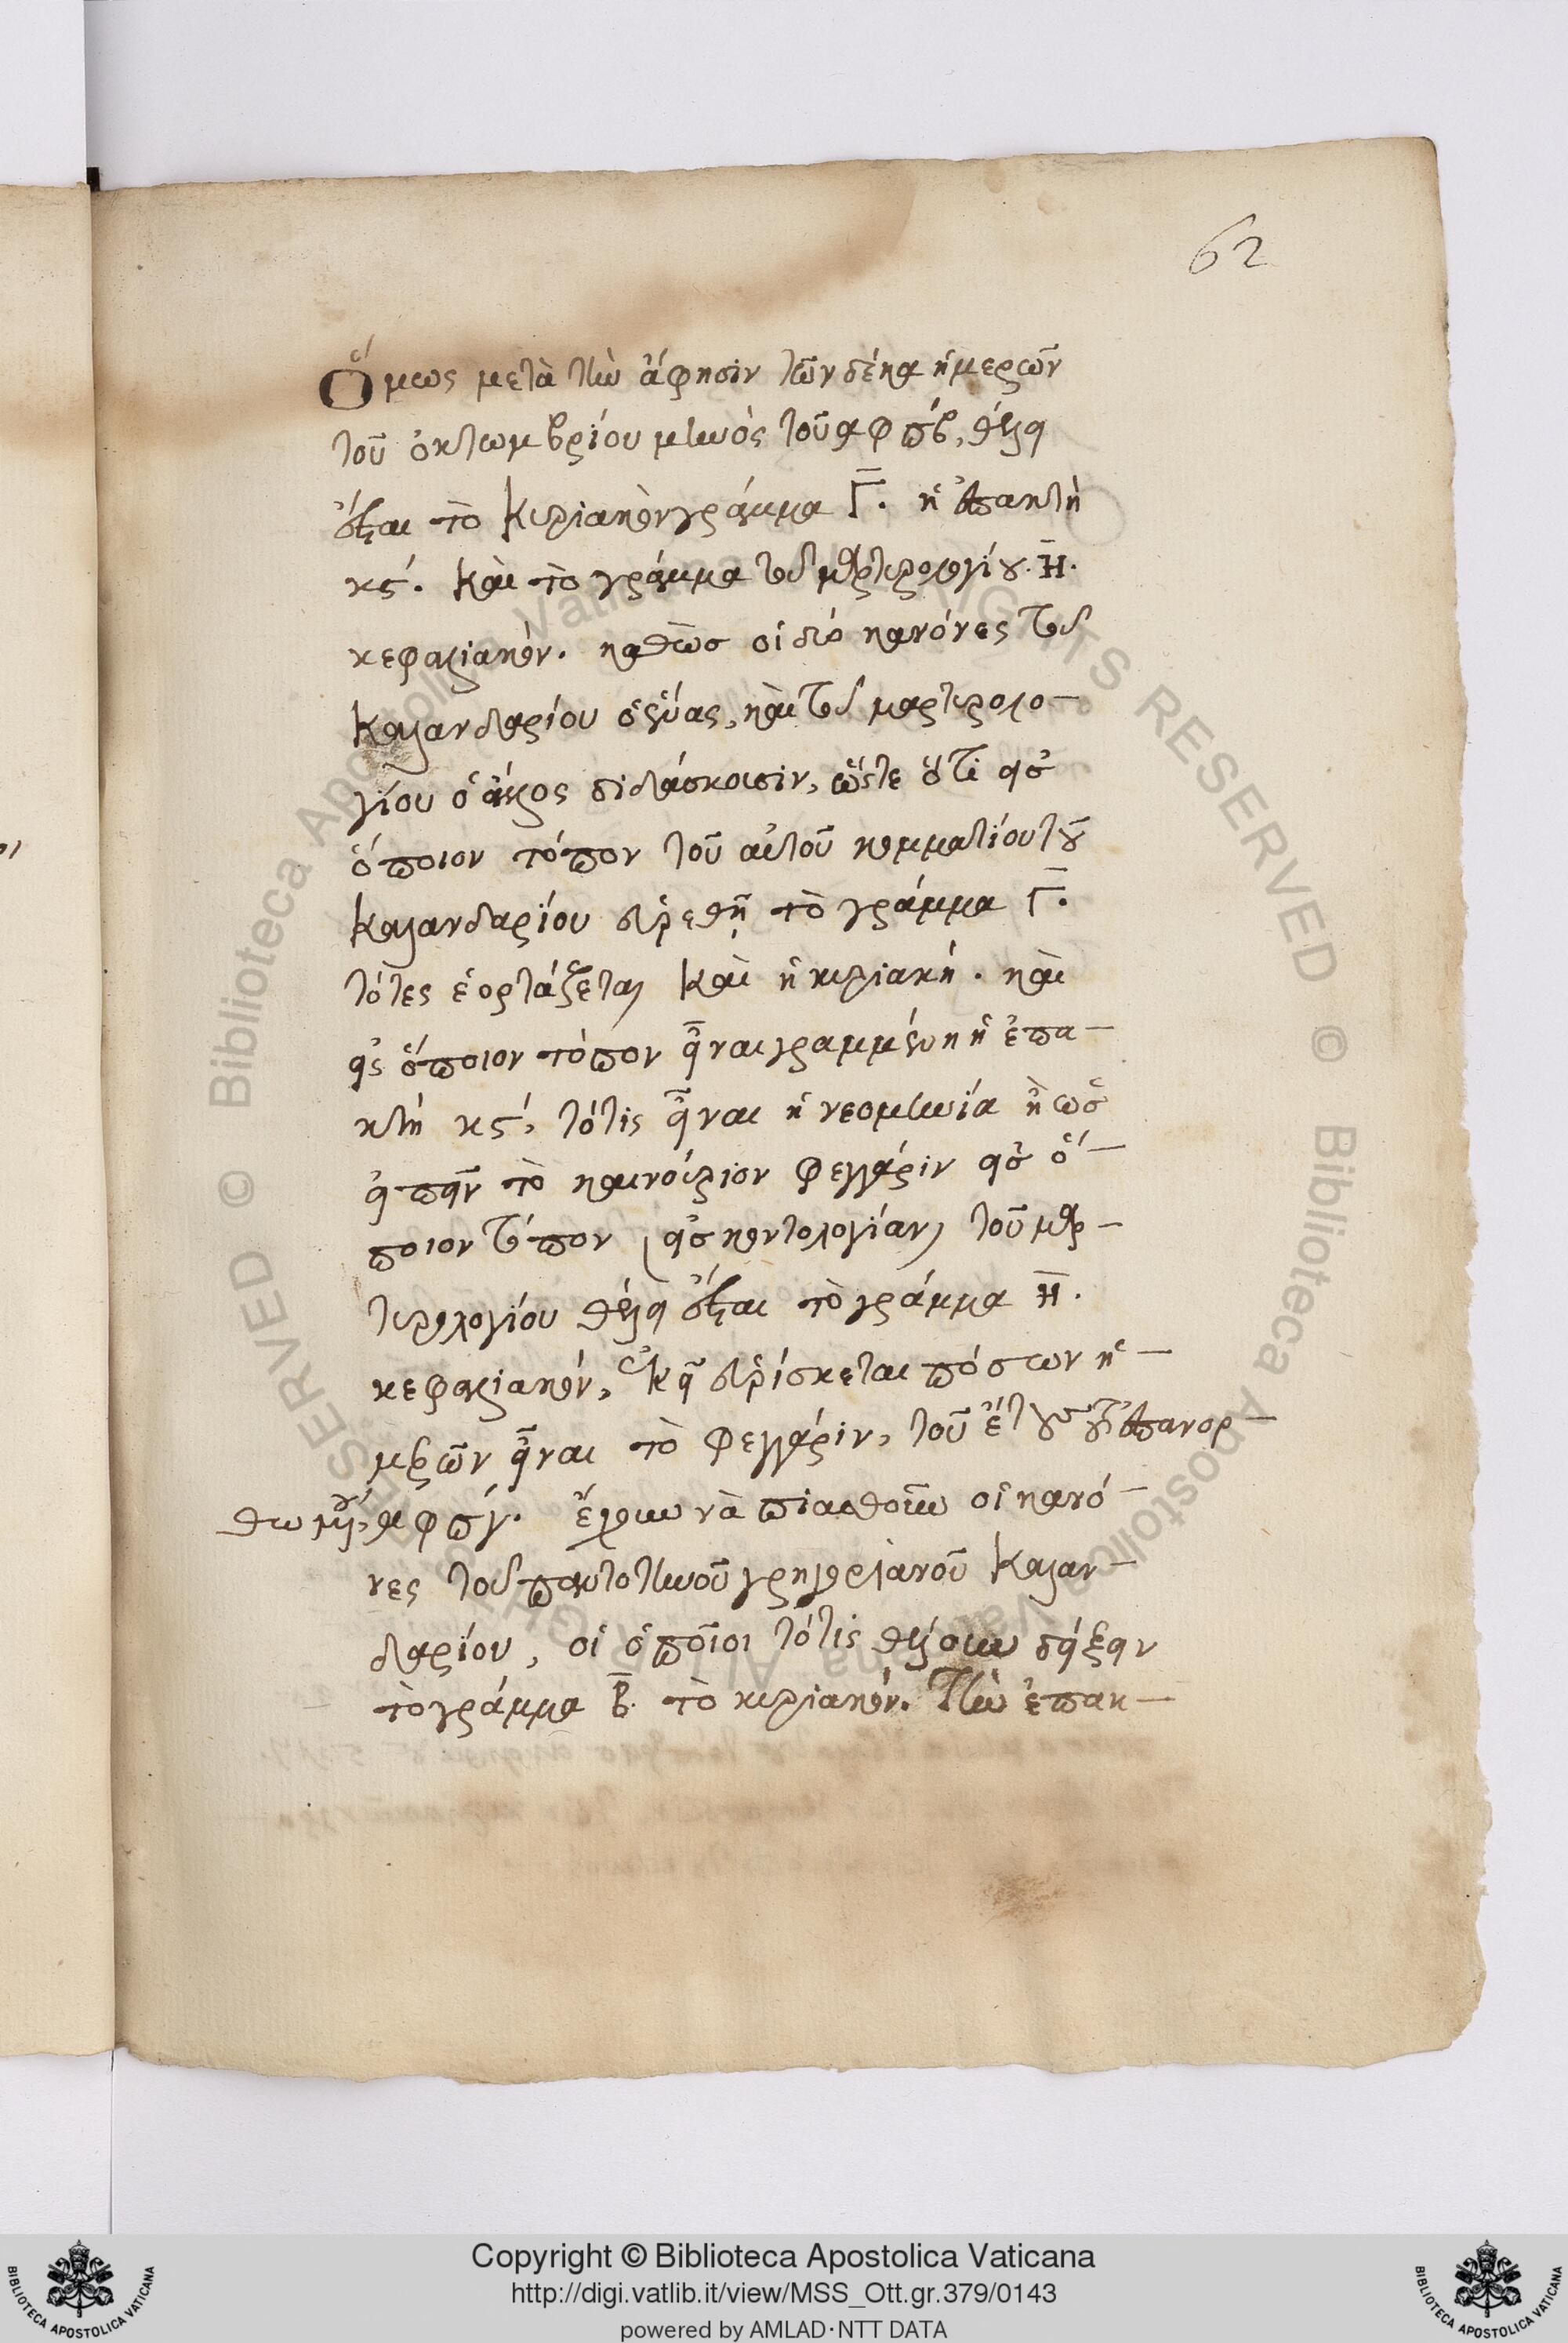 62
Ὅμως μετὰ τὴν ἄφησιν τῶν δέκα ἡμερῶν
τοῦ ὀκτωμβρίου μηνὸς τοῦ αφπβ, θέλει
ἔσται τὸ Κυριακὸν γράμμα Γ. ἡ ἐπακτὴ
κς. Καὶ τὸ γράμμα τοῦ μαρτυρολογίου. Η.
κεφαλιακόν. καθὼσ οἱ δύο κανόνες τοῦ
Καλανδαρίου ὁ εἷας, καὶ τοῦ μαρτυρολο-
γίου ὁ ἄλλος διδάσκουσιν, ὥστε ὅτι εἰσ
ὅποιον τόπον τοῦ αὐτοῦ κομματίου τοῦ
Καλανδαρίου εὑρεθῇ τὸ γράμμα Γ.
τότες ἑορτάζεται Καὶ ἡ κυριακή. καὶ
εἰς ὅποιον τόπον εἶναι γραμμένη ἡ ἐπα-
κτή κς, τότις εἶναι ἡ νεομηνία ἢ ὡσ
εἰπεῖν τὸ καινούριον φεγγάριν εἰσ ὅ-
ποιον τόπον (εἰσ κοντολογίαν) τοῦ μαρ-
τυρολογίου θέλει ἔσται τὸ γράμμα Η.
κεφαλιακόν, ἐκεῖ εὑρίσκεται πόσων ἡ-
μερῶν εἶναι τὸ φεγγάριν, τοῦ ἔτους τοῦ ἐπανορ-
θωμένου, αφπγ. ἔχουν νὰ πιασθοῦν οἱ κανό-
νες τοῦ παντοτινοῦ γρηγοριανοῦ Καλαν-
δαρίου, οἱ ὁποῖοι τότις θέλουσιν δείξειν
τὸ γράμμα Β. τὸ κυριακόν. Τὴν ἐπακ-
Copyright © Biblioteca Apostolica Vaticana
http://digi.vatlib.it/view/MSS_Ott.gr.379/0143
powered by AMLAD·NTT DATA